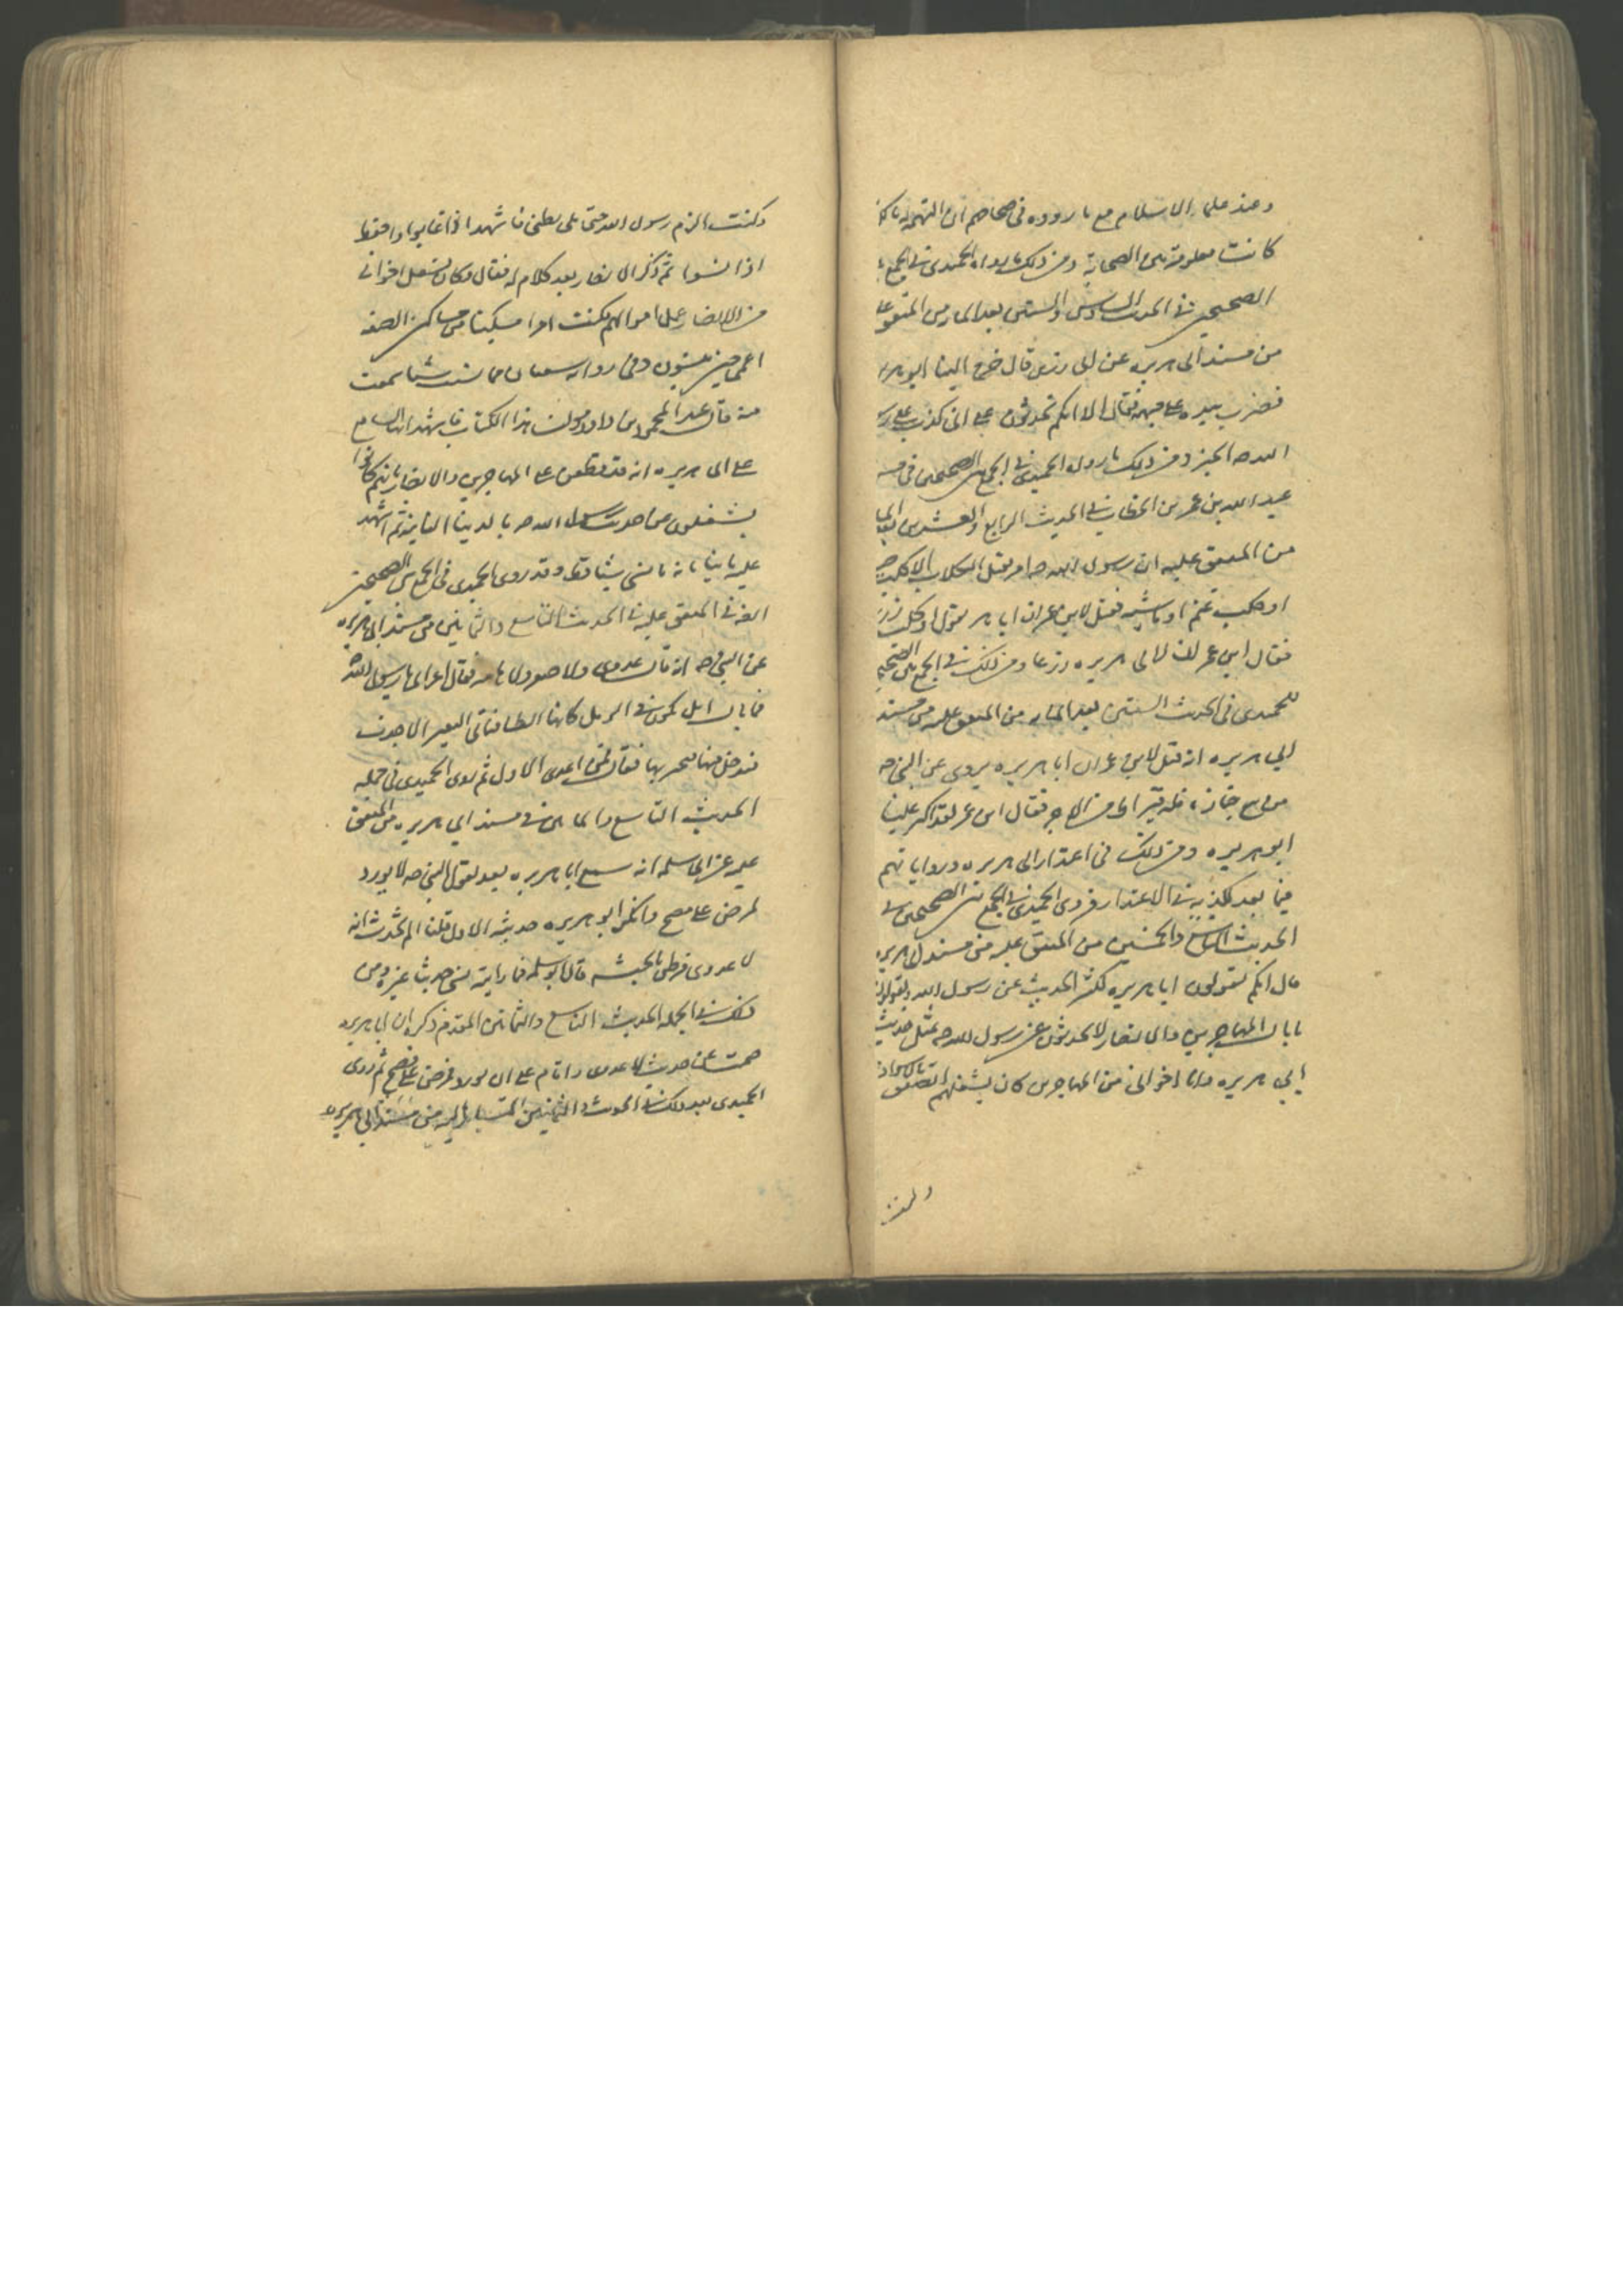 وعند علماء الاسلام مع ما رووه فى صحاحهم ان التهمة له
كانت معلومة بين الصحابة ومن ذلك ما رواه الحميدى فى الجمع
الصحيحين فى الحديث السادس والستين بعد المايه من المتفق
من مسند ابى هريره عن ابى رزين قال خرج الينا ابو هر
فضرب بيده على جبهته فقال الا انكم تحدثون على انى كذب على
الله صه الخبر ومن ذلك ما رواه الحميدى فى الجمع بين الصحيحين فى
عبد الله بن عمر بن الخطاب فى الحديث الرابع والعشرين بعد الما
من المتفق عليه ان رسول الله صه امر بقتل الكلاب الا كلب
او كلب غنم او ماشيه فقيل لابن عمر ان ابا هر يقول او كلب زر
فقال ابن عمر ان لابى هريره زرعا ومن ذلك فى الجمع بين
للحميدى فى الحديث الستين بعد المايه من المتفق عليه من مسند
ابى هريره انه قيل لابن عمر ان ابا هريره يروى عن النبى صه
من تبع جنازه فله قيراط من الاجر فقال ابن عمر لقد اكثر علينا
ابو هريره ومن ذلك فى اعتذار ابى هريره ورواياتهم
فيما بعد تكذيبه فى الاعتذار فروى الحميدى فى الجمع بين الصحيحين فى
الحديث والخمسين من المتفق عليه من مسند ابى هريره
قال انكم تقولون ابا هريره يكثر الحديث عن رسول الله وتقولون
ما بال المهاجرين والانصار لا يحدثون عن رسول الله صه بمثل حديث
ابى هريره وان اخوانى من المهاجرين كان يشغلهم الصفق
وكنت
وكنت الزم رسول الله صه على ملى بطنى فاشهد اذا غابوا واحفظ
اذا نسوا ثم ذكر الانصار بعد كلام له فقال وكان يشغل اخوانى
من الانصار عمل اموالهم وكنت امرا مسكينا من مساكين الصفه
اعى حين ينسون وفى روايه سفيان فما نسيت شيئا سمعت
منه قال عبد المحمود بن داود مولف هذا الكتاب فاشهد ايها السامع
على ابى هريره انه قد طعن على المهاجرين والانصار بانهم كانوا
يشغلون عن احاديث رسول الله صه بالدنيا الفانيه ثم اشهد
عليه ما نسى شيئا قط وقد روى الحميدى فى الجمع بين الصحيحين
ايضا فى المتفق عليه فى الحديث التاسع والثمانين من مسند ابى هريره
عن النبى صه انه قال لا عدوى ولا صفر ولا هامه فقال اعرابى يا رسول الله
فما بال ابل تكون فى الرمل كانها الظبا فياتى البعير الاجرب
فيدخل فيها فيجربها فقال فمن اعدى الاول ثم روى الحميدى فى جمله
الحديث التاسع والثمانين فى مسند ابى هريره من المتفق
عليه عن ابى سلمه انه سمع ابا هريره بعد يقول قال النبى صه لا يورد
ممرض على مصح وانكر ابو هريره حديثه الاول قلنا الم تحدث انه
لا عدوى فرطن بالحبشه قال ابو سلمه فما رايته نسى حديثا غيره ومن
ذلك فى الجمله الحديث التاسع والثمانين المقدم ذكره ان ابا هريره
صمت عن حديث لا عدوى واقام على ان لا يورد ممرض على مصح ثم روى
الحميدى بعد ذلك فى الحديث والثمانين من مسند ابى هريره